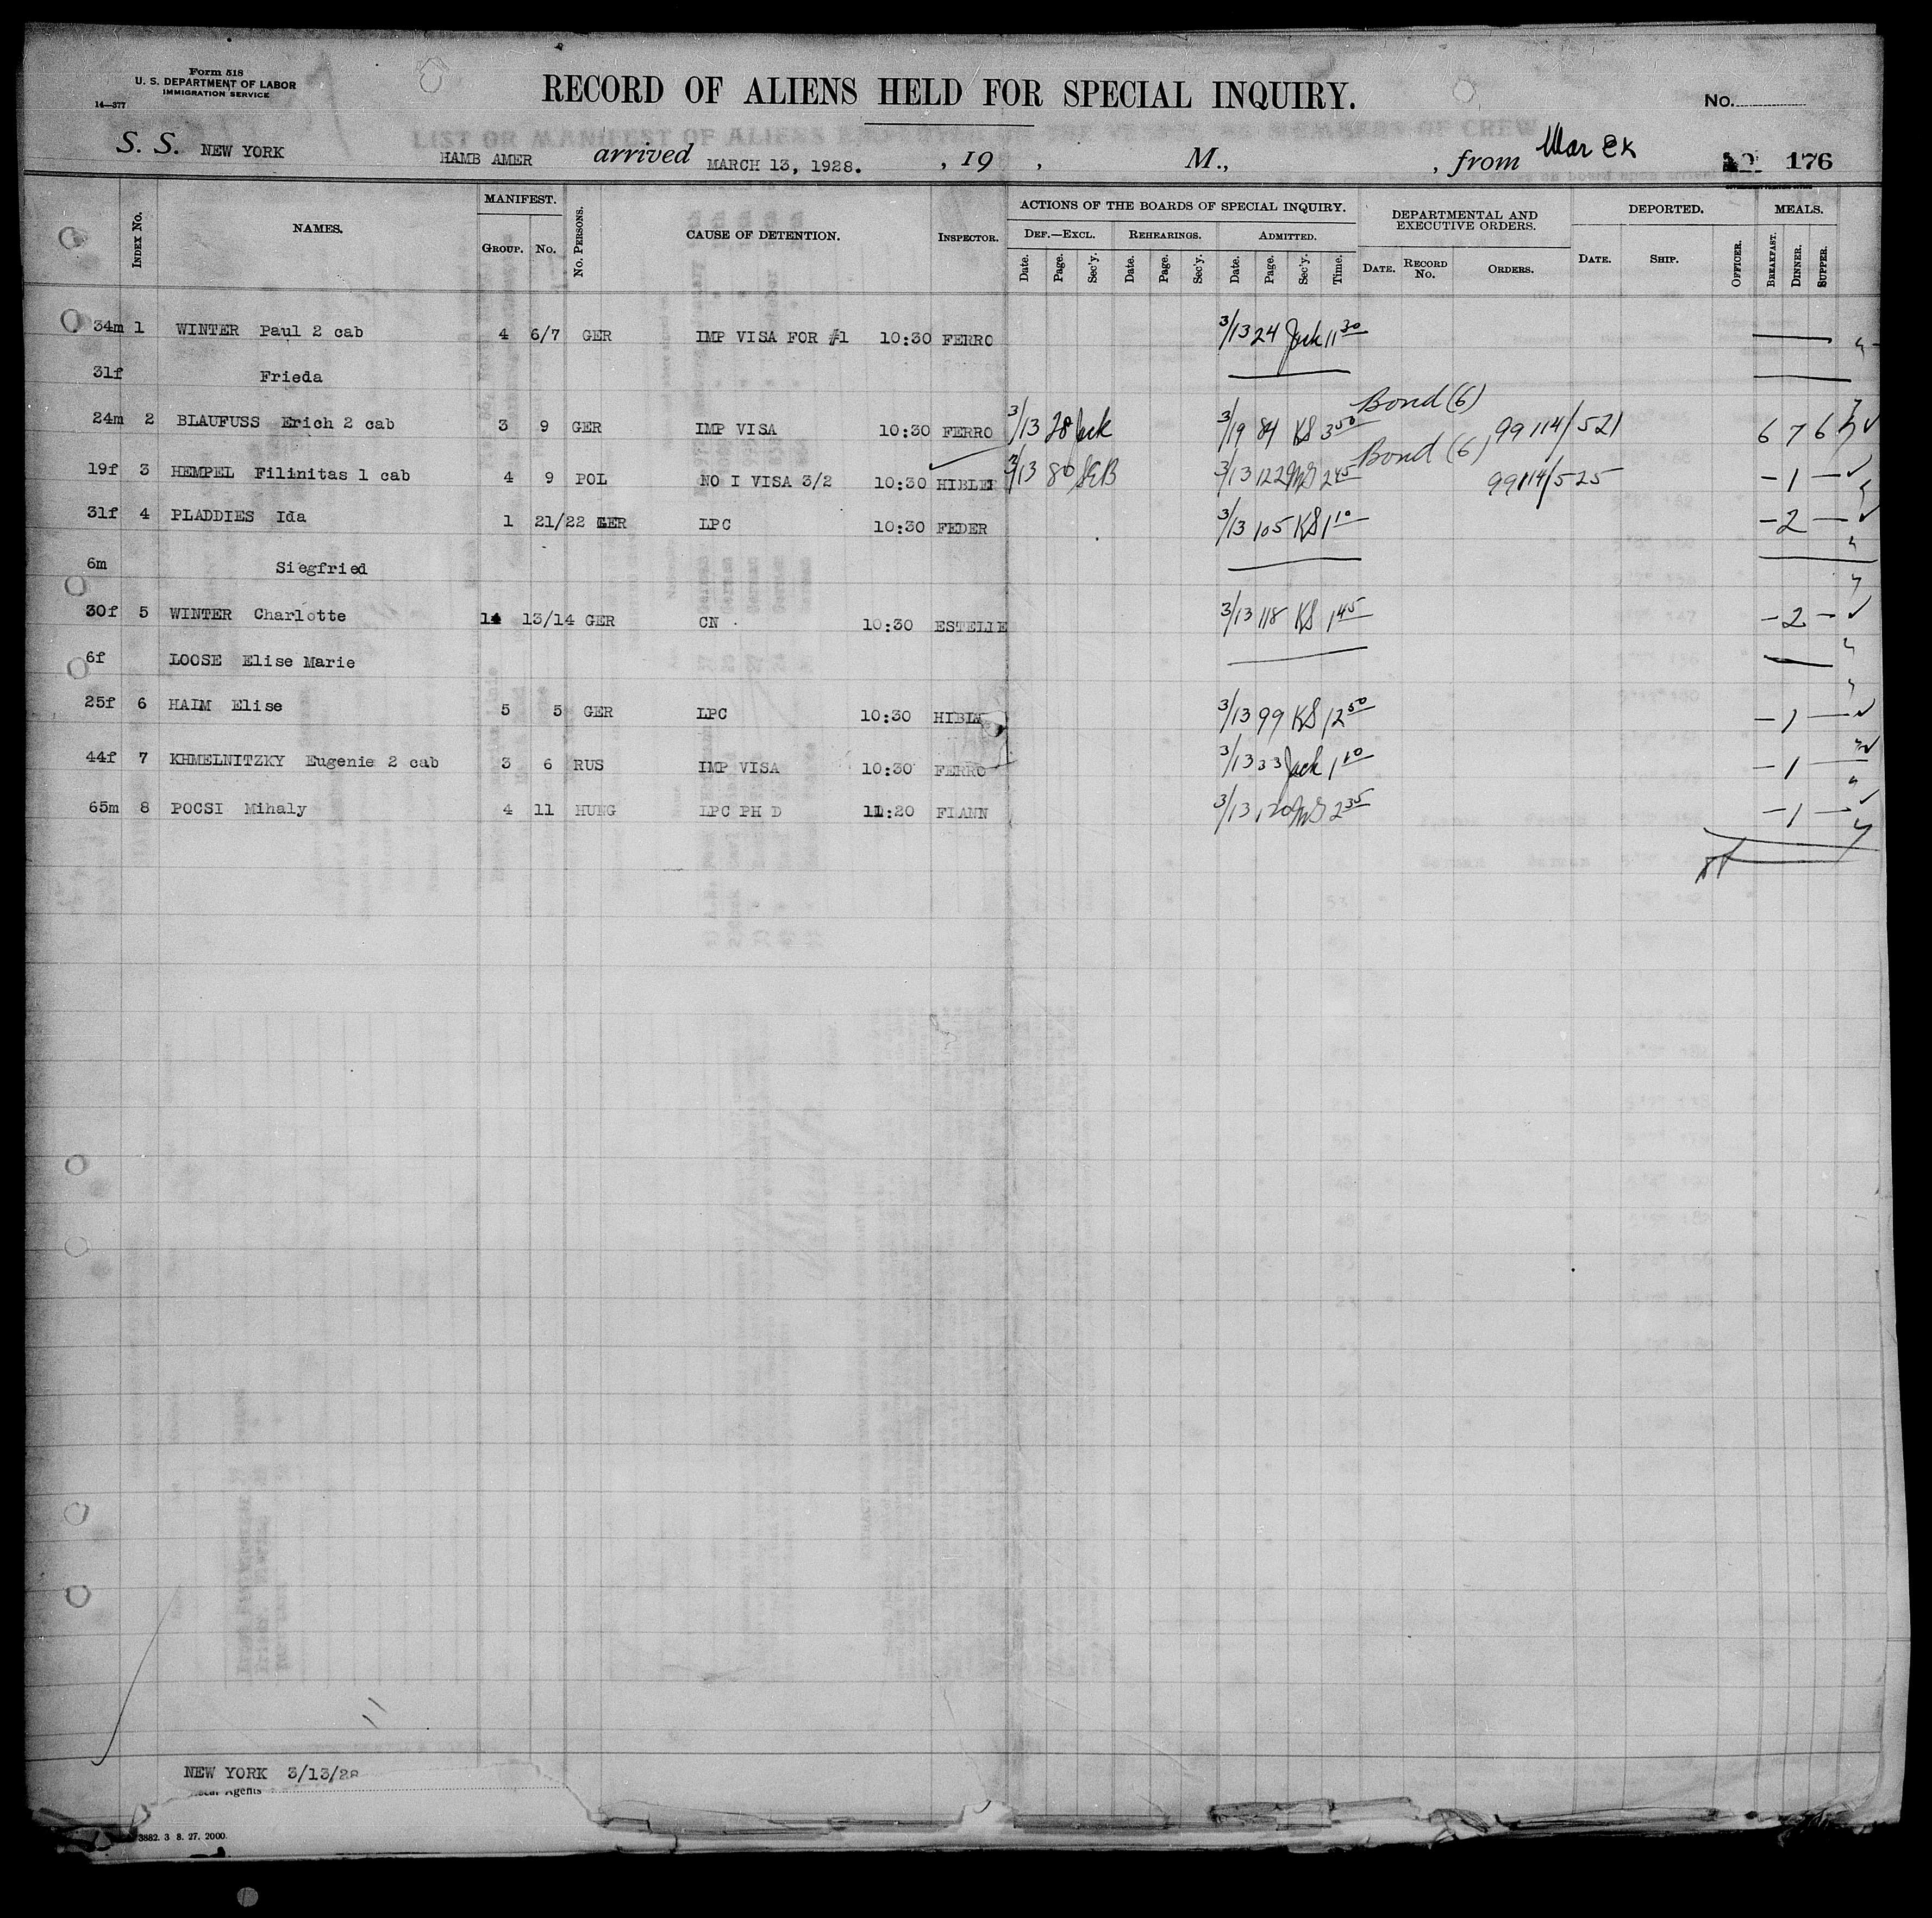 Form 518
U. S. DEPARTMENT OF LABOR
IMMIGRATION SERVICE
14—377
RECORD OF ALIENS HELD FOR SPECIAL INQUIRY.
No.
LIST OR MANIFEST OF ALIENS EMPLOYED ON THE VESSEL AS MEMBERS OF CREW
S. S. NEW YORK HAMB AMER arrived MARCH 13, 1928. , 19 , M., , from 176
Index No. NAMES. MANIFEST. Group. No. No. Persons. CAUSE OF DETENTION. Inspector.
ACTIONS OF THE BOARDS OF SPECIAL INQUIRY. Def.—Excl. Date. Page. Sec'y. Rehearings. Date. Page. Sec'y. Admitted. Date. Page. Sec'y. Time.
DEPARTMENTAL AND EXECUTIVE ORDERS. Date. Record No. Orders.
DEPORTED. Date. Ship. Officer. MEALS. Breakfast. Dinner. Supper.
34m 1 WINTER Paul 2 cab 4 6/7 GER IMP VISA FOR #1 10:30 FERRO 3/13 24 Jack 11 30
31f Frieda
24m 2 BLAUFUSS Erich 2 cab 3 9 GER IMP VISA 10:30 FERRO 3/13 28 Jack 3/19 84 KS 3 50 Bond (6) 99114/521 6 7 6
19f 3 HEMPEL Filinitas 1 cab 4 9 POL NO I VISA 3/2 10:30 HIBLER 3/13 80 SEB 3/13 122 MS 2 45 Bond (6) 99114/525 – 1 –
31f 4 PLADDIES Ida 1 21/22 GER LPC 10:30 FEDER 3/13 105 KS 1 10 – 2 –
6m Siegfried
30f 5 WINTER Charlotte 14 13/14 GER CN 10:30 ESTELLE 3/13 118 KS 1 45 – 2 –
6f LOOSE Elise Marie
25f 6 HAIM Elise 5 5 GER LPC 10:30 3/13 99 KS 12 50 – 1 –
44f 7 KHMELNITZKY Eugenie 2 cab 3 6 RUS IMP VISA 10:30 FERRO 3/13 33 Jack 1 10 – 1 –
65m 8 POCSI Mihaly 4 11 HUNG LPC PH D 11:20 FLANN 3/13 120 MS 2 35 – 1 –
NEW YORK 3/13/28
Agents
3882. 3 8. 27. 2000.